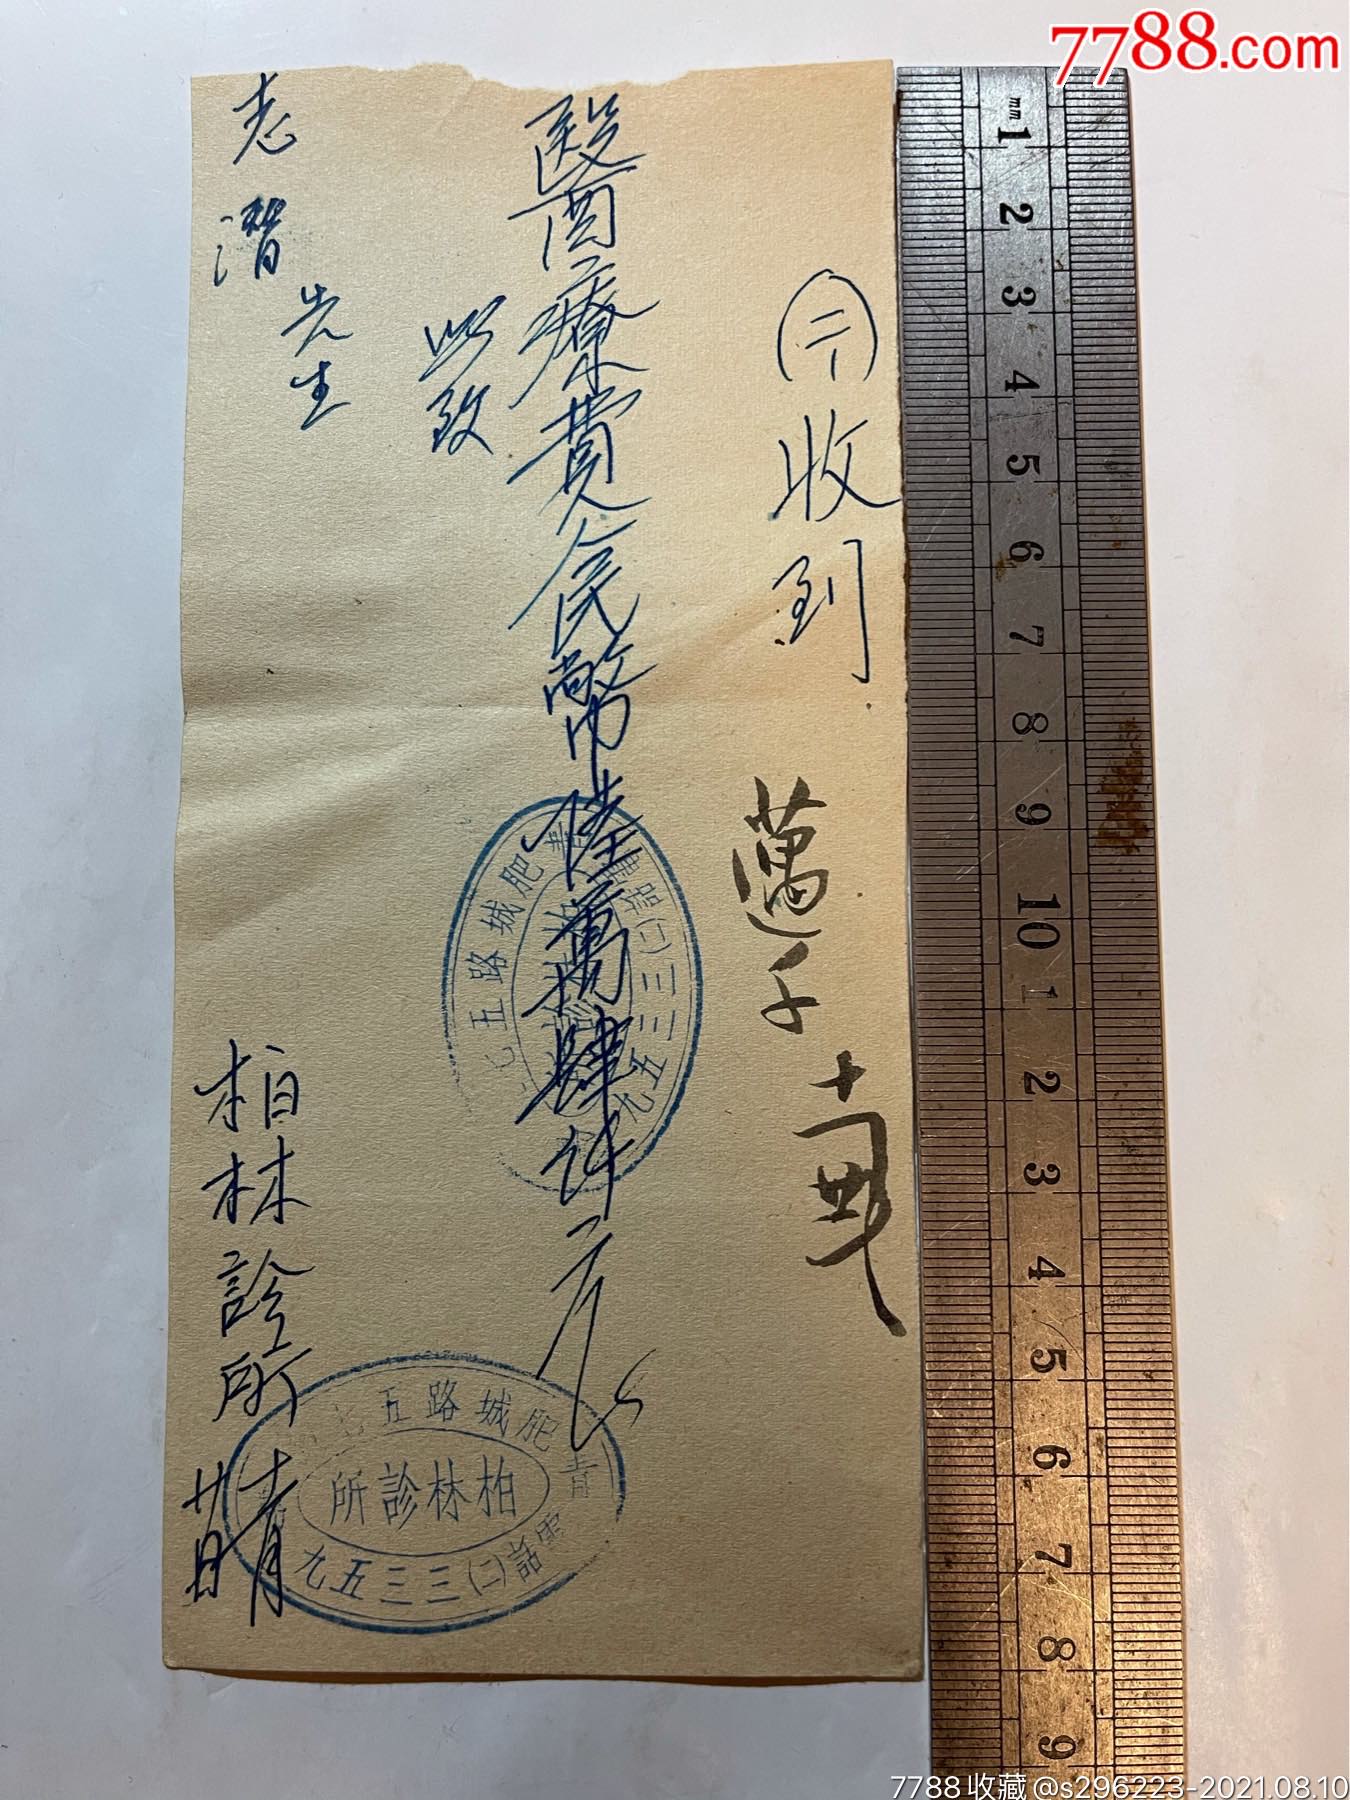 7788.com
收到
醫療費人民幣陸萬肆仟元
此致
志潛先生
柏林診所
青肥城路五七
柏林診所
電話(二)三三五九
青肥城路五七
電話(二)三三五九
mm
1
2
3
4
5
6
7
8
9
10
1
2
3
4
5
6
7
8
9
7788收藏@s296223-2021.08.10